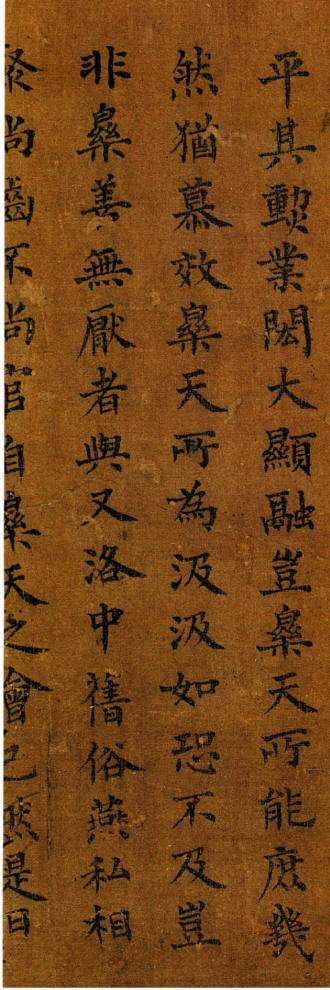 平其勲業閎大顯融豈樂天所能庶幾
然猶慕效樂天所為汲汲如恐不及豈
非樂善無厭者與又洛中舊俗燕私相
聚尚齒不尚官自樂天之會已然是日